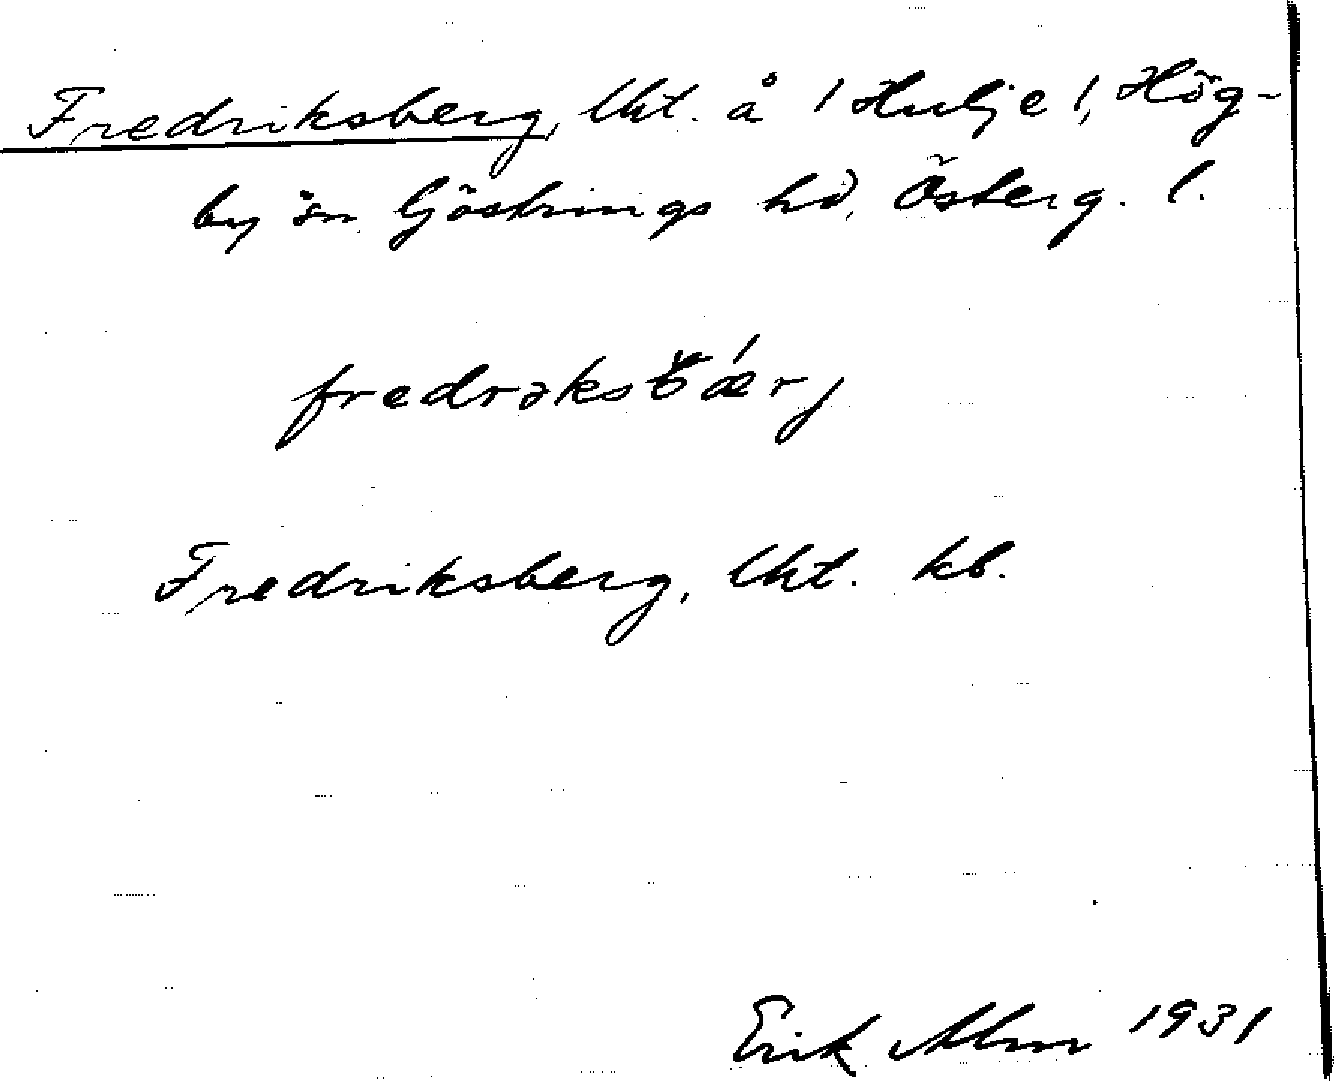 Fredriksberg, lht. å 1 Hulje 1, Hög-
by sn Göstrings hd, Österg. l.
fredrəksbær,j
Fredriksberg, lht. kb.
Erik Alm 1931